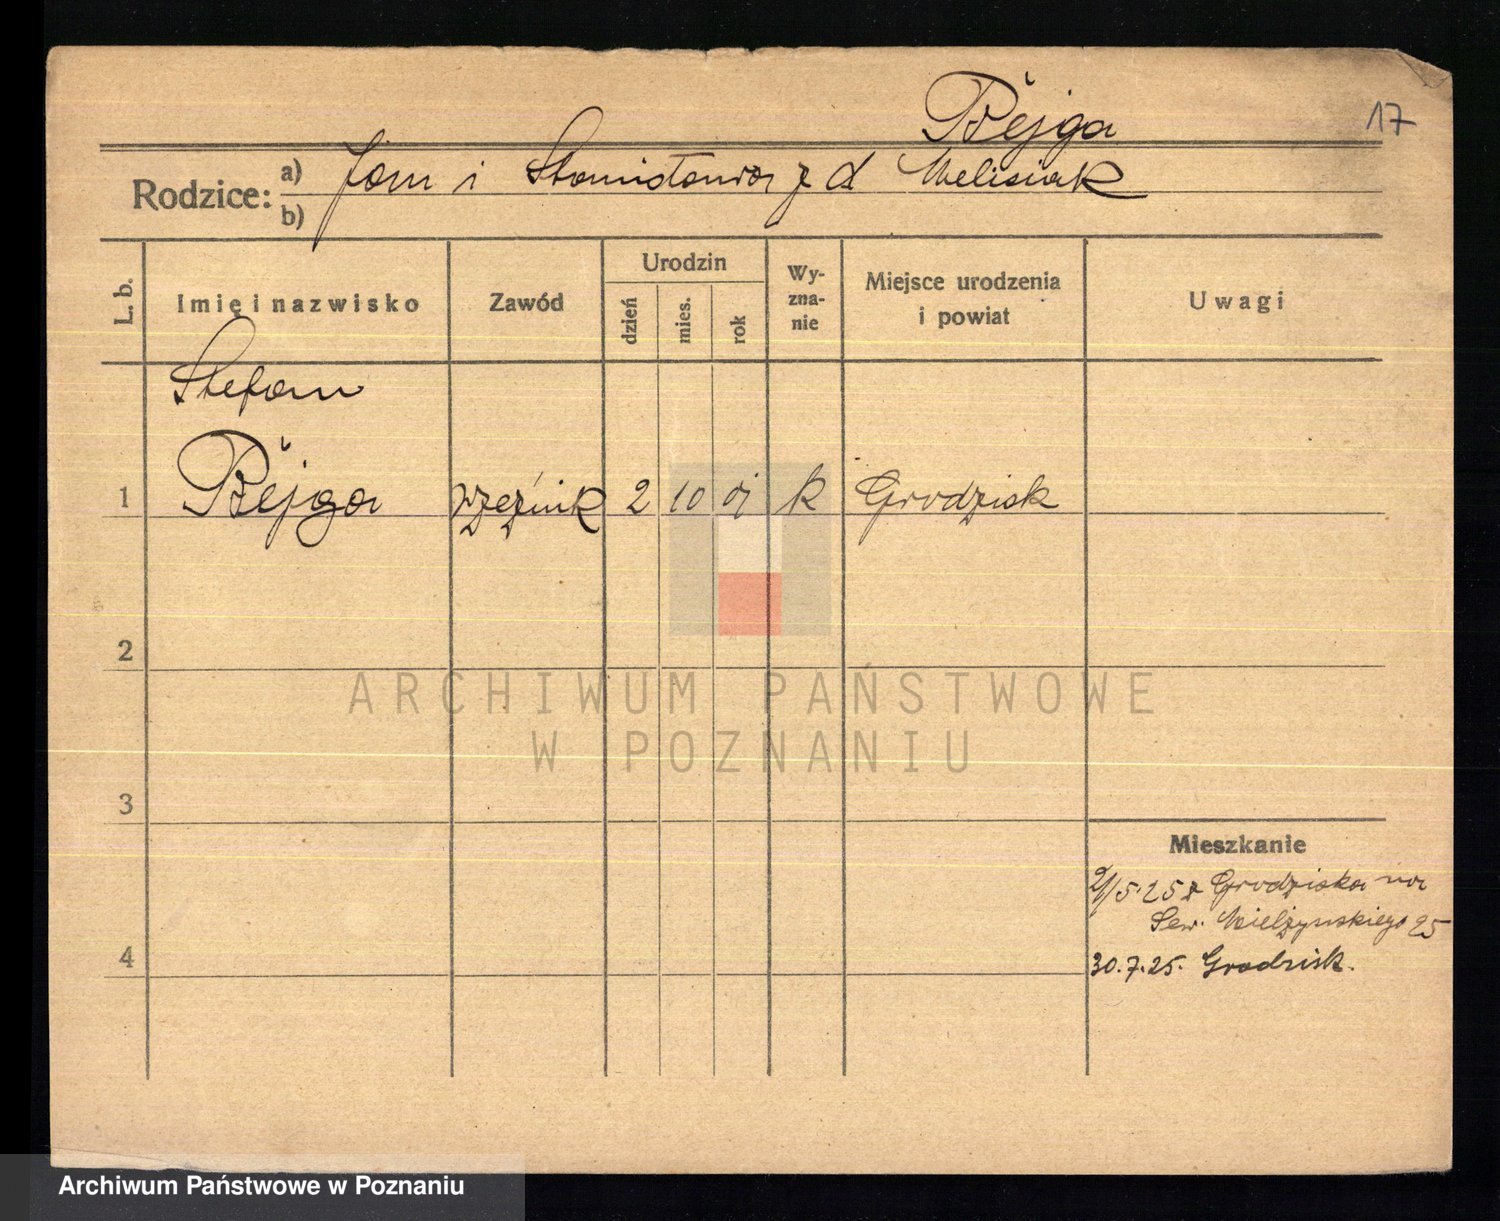 Bejga
17
Rodzice:
a) Jan i Stanisława z d Melisiak
b)
L. b.
Imię i nazwisko
Zawód
Urodzin
dzień
mies.
rok
Wy-
zna-
nie
Miejsce urodzenia
i powiat
Uwagi
Stefan
1 Bejga rzeźnik 2 10 k Grodzisk
2
ARCHIWUM PAŃSTWOWE
W POZNANIU
3
Mieszkanie
2/5.25 z Grodziska na
Sew. Mielżynskiego 25
4
30.7.25. Grodzisk.
Archiwum Państwowe w Poznaniu